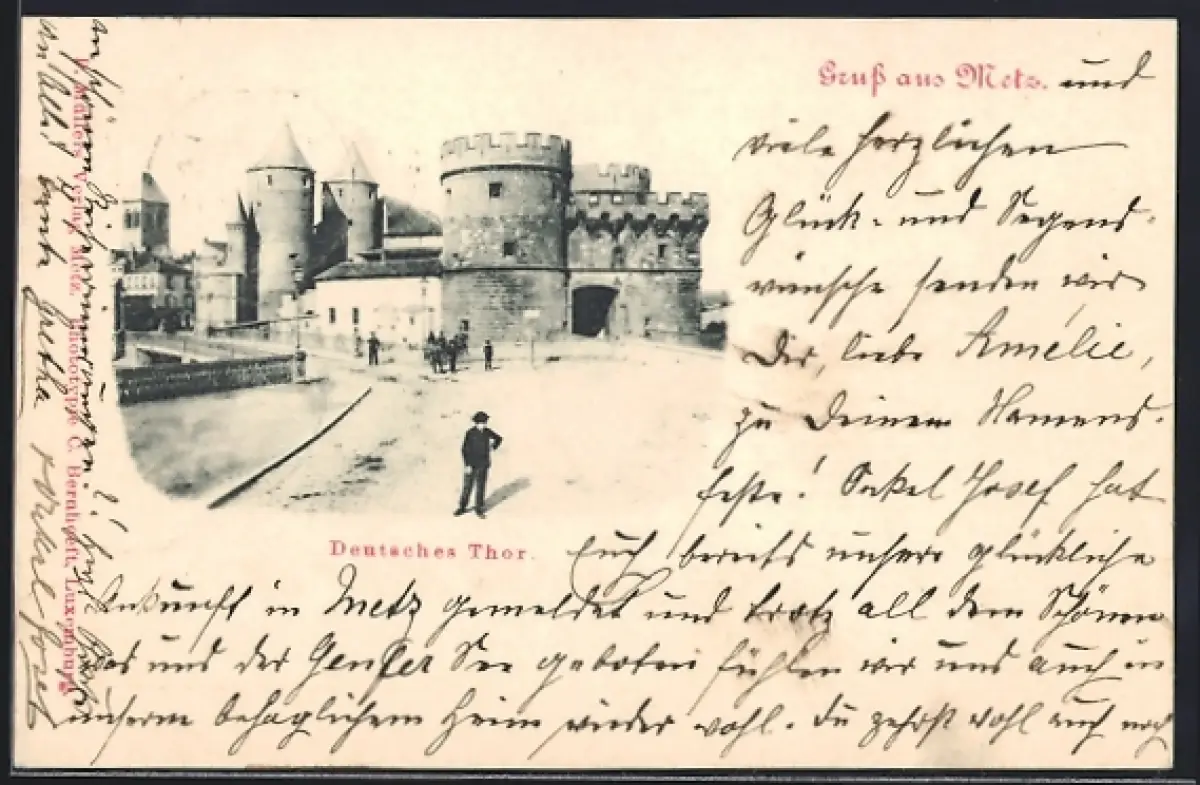 Gruß aus Metz. und
viele herzlichen
Glück- und Segens-
wünsche senden wir
Dir, liebe Amélie,
zu Deinem Namens-
feste! Onkel Josef hat
Euch bereits unsere glückliche
Ankunft in Metz gemeldet und trotz all dem Schönen
das uns der Genfer See geboten fühlen wir uns auch in
unserm behaglichen Heim wieder wohl. Du gehst wohl auch noch
Deutsches Thor.
P. Müllers Verlag, Metz. Phototypie C. Bernhoeft, Luxemburg
an Alle! Tante Gretha